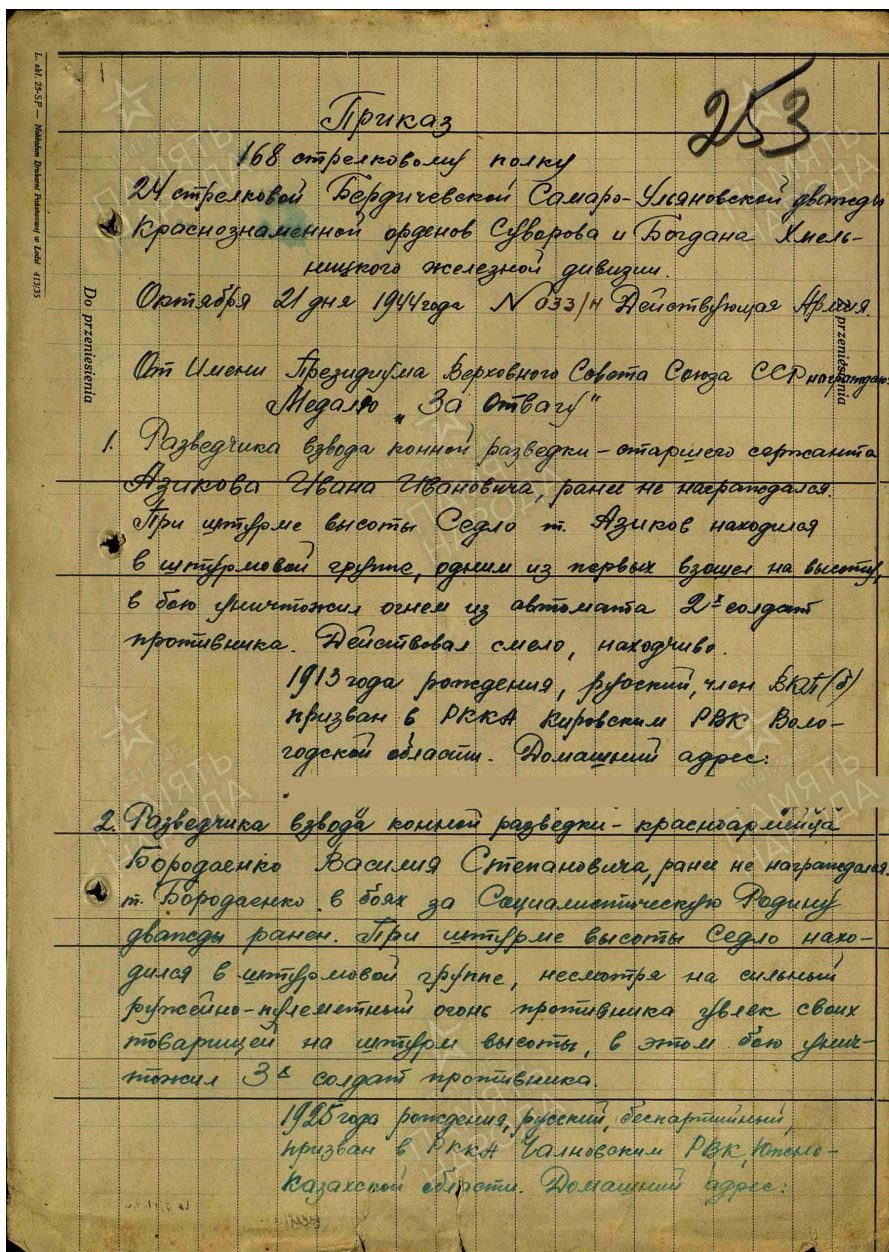 L. skł. 25-SP — Nakładem Drukarni Państwowej w Łodzi 413/35
253
Приказ
168 стрелковому полку
24 стрелковой Бердичевской Самаро-Ульяновской дважды
Краснознаменной орденов Суворова и Богдана Хмель-
ницкого железной дивизии.
Октября 21 дня 1944 года № 033/н Действующая Армия.
Do przeniesienia
przeniesienia
От Имени Президиума Верховного Совета Союза ССР награждаю:
Медалью „За Отвагу"
1. Разведчика взвода конной разведки – старшего сержанта
Азикова Ивана Ивановича, ранее не награждался.
При штурме высоты Седло т. Азиков находился
в штурмовой группе, одним из первых взошел на высоту,
в бою уничтожил огнем из автомата 2х солдат
противника. Действовал смело, находчиво.
1913 года рождения, русский, член ВКП(б)
призван в РККА Кировским РВК Воло-
годской области. Домашний адрес:
2. Разведчика взвода конной разведки – красноармейца
Бородаенко Василия Степановича, ранее не награждался.
т. Бородаенко в боях за Социалистическую Родину
дважды ранен. При штурме высоты Седло нахо-
дился в штурмовой группе, несмотря на сильный
ружейно-пулеметный огонь противника увлек своих
товарищей на штурм высоты, в этом бою унич-
тожил 3х солдат противника.
1925 года рождения, русский, беспартийный,
призван в РККА Чалновским РВК, Южно-
Казахской области. Домашний адрес:
1941-1945
ПАМЯТЬ
НАРОДА